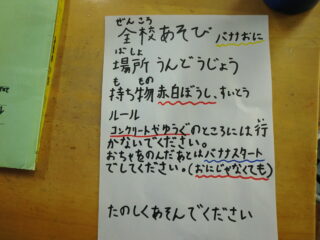 ぜんこう
全校あそび バナナおに
ばしょ
場所 うんどうじょう
も もの
持ち物 赤白ぼうし、すいとう
ルール
コンクリートやゆうぐのところには行
かないでください。
おちゃをのんだあとはバナナスタート
でしてください。(おにじゃなくても)
たのしくあそんでください